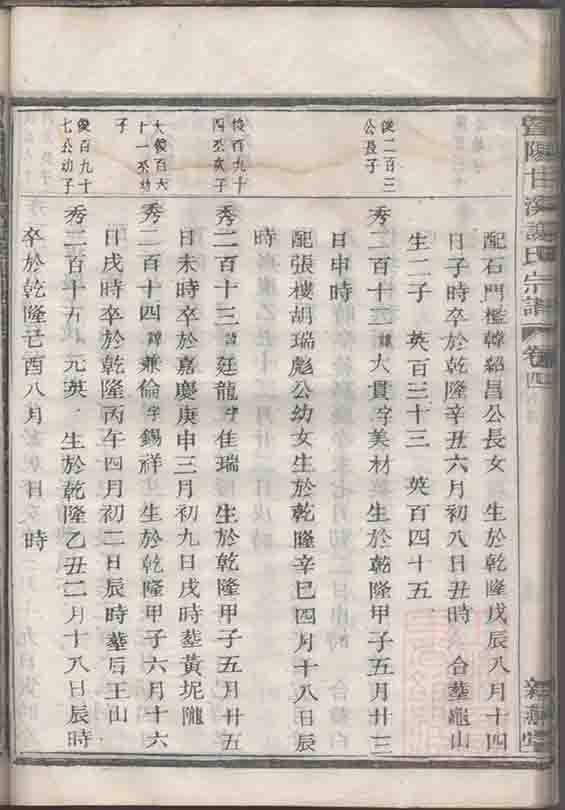 暨陽甘溪謝氏宗譜 卷四
配石門檻韓紹昌公長女 生於乾隆戊辰八月十四
日子時卒於乾隆辛丑六月初八日丑時 合塟龜山
生二子 英百三十三 英百四十五
俊二百三
公長子
秀二百十二諱大貫字美材 生於乾隆甲子五月廿三
日申時
配張樓胡瑞彪公幼女生於乾隆辛巳四月十八日辰
時
俊百九十
四公次子
秀二百十三諱廷龍字佳瑞 生於乾隆甲子五月廿五
日未時卒於嘉慶庚申三月初九日戌時塟黃坭隴
大俊百六
十一公幼
子
秀二百十四諱兼倫字錫祥 生於乾隆甲子六月十六
日戌時卒於乾隆丙午四月初二日辰時塟后王山
俊百九十
七公幼子
秀二百十五 元英 生於乾隆乙丑二月十八日辰時
卒於乾隆己酉八月 日 時